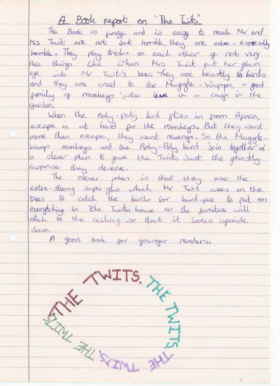 A Book report on 'The Twits'
The Book is funny and is easy to read. Mr and
Mrs Twit are not just horrible, they are extra-extra-ordinarily
horrible. They play tricks on each other
things like when Mrs Twit put her glass
eye into Mr Twit's beer. They are beastly to birds
and they are cruel to the Muggle-Wumps, a
family of monkeys who live in a cage in the
garden.
When the Roly-Poly bird flies in from Africa,
escape is at hand for the monkeys. But they want
more than escape, they want revenge. So the Muggle-
Wump monkeys and the Roly-Poly bird join together
a clever plan to give the Twits just the ghastly
surprise they deserve.
The clever plan is that they use the
extra-strong super glue which Mr Twit uses on the
trees to catch the birds for bird-pie to put on
everything in the Twits house so the furniture will
stick to the ceiling so that it looks upside
down.
A good book for younger readers.
THE TWITS.
THE TWITS
THE TWITS
THE TWITS